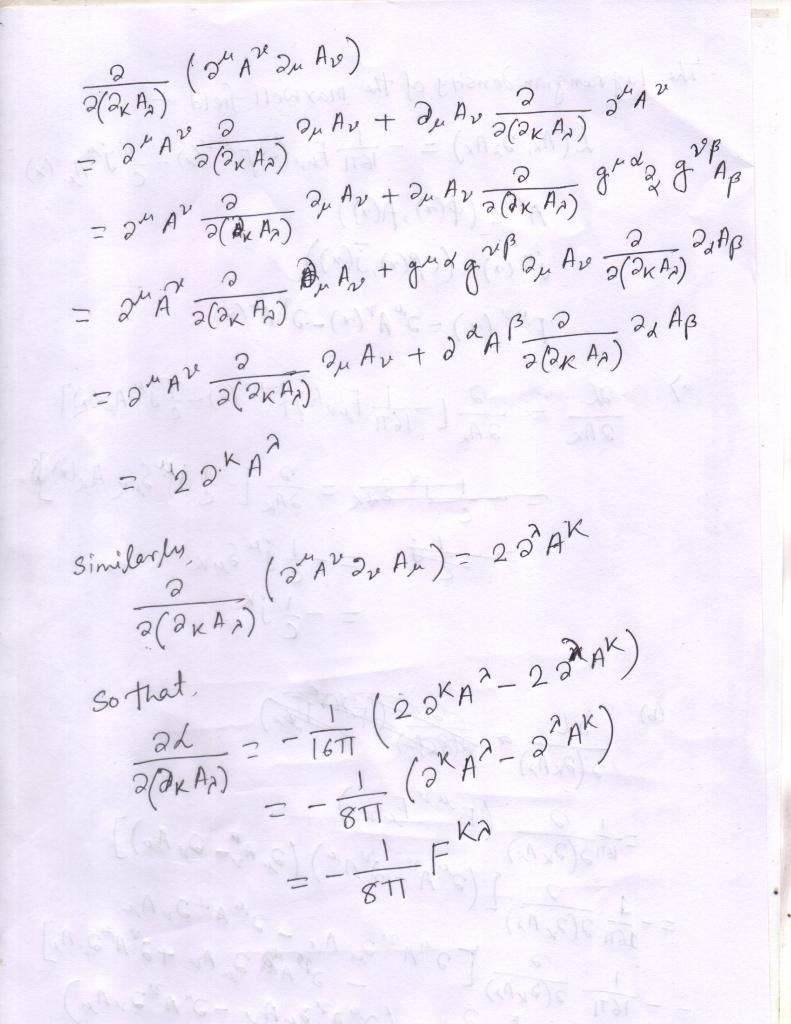 ∂/∂(∂κ Aλ) (∂^μ A^ν ∂μ Aν)
= ∂^μ A^ν ∂/∂(∂κ Aλ) ∂μ Aν + ∂μ Aν ∂/∂(∂κ Aλ) ∂^μ A^ν
= ∂^μ A^ν ∂/∂(∂κ Aλ) ∂μ Aν + ∂μ Aν ∂/∂(∂κ Aλ) g^μα ∂α g^νβ Aβ
= ∂^μ A^ν ∂/∂(∂κ Aλ) ∂μ Aν + g^μα g^νβ ∂μ Aν ∂/∂(∂κ Aλ) ∂α Aβ
= ∂^μ A^ν ∂/∂(∂κ Aλ) ∂μ Aν + ∂^α A^β ∂/∂(∂κ Aλ) ∂α Aβ
= 2 ∂^κ A^λ
Similarly,
∂/∂(∂κ Aλ) (∂^μ A^ν ∂ν Aμ) = 2 ∂^λ A^κ
So that,
∂L/∂(∂κ Aλ) = - 1/16π (2 ∂^κ A^λ - 2 ∂^λ A^κ)
= - 1/8π (∂^κ A^λ - ∂^λ A^κ)
= - 1/8π F^κλ